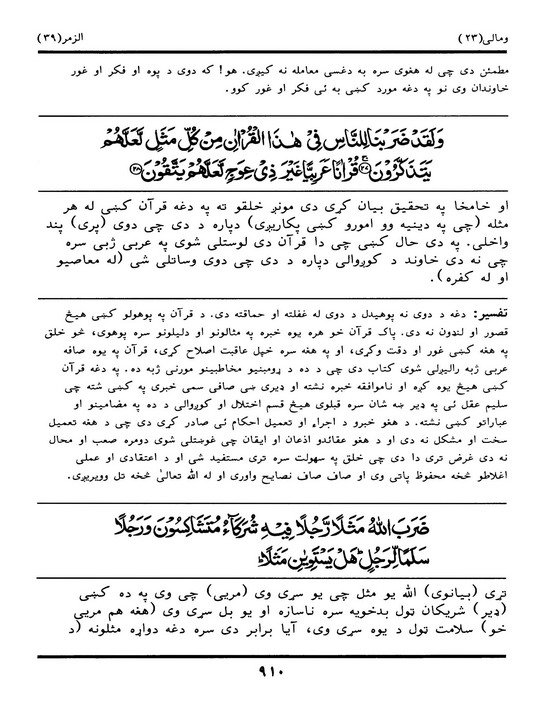 ومالی(۲۳) الزمر(۳۹)
مطمئن دی چی له هغوی سره به دغسی معامله نه کیږی. هو! که دوی د پوه او فکر او غور
خاوندان وی نو په دغه مورد کښی به ئی فکر او غور کوو.
وَلَقَدْ ضَرَبْنَا لِلنَّاسِ فِیْ هٰذَا الْقُرْاٰنِ مِنْ کُلِّ مَثَلٍ لَّعَلَّهُمْ
یَتَذَکَّرُوْنَ ﴿۲۷﴾ قُرْاٰنًا عَرَبِیًّا غَیْرَ ذِیْ عِوَجٍ لَّعَلَّهُمْ یَتَّقُوْنَ ﴿۲۸﴾
او خامخا په تحقیق بیان کړی دی مونږ خلقو ته په دغه قرآن کښی له هر
مثله (چی په دینیه وو امورو کښی پکاریږی) دپاره د دی چی دوی (پری) پند
واخلی. په دی حال کښی چی دا قرآن دی لوستلی شوی په عربی ژبی سره
چی نه دی خاوند د کوږوالی دپاره د دی چی دوی وساتلی شی (له معاصیو
او له کفره).
تفسیر: دغه د دوی نه پوهیدل د دوی له غفلته او حماقته دی. د قرآن په پوهولو کښی هیڅ
قصور او لنډون نه دی. پاک قرآن خو هره یوه خبره په مثالونو او دلیلونو سره پوهوی، څو خلق
په هغه کښی غور او دقت وکړی، او په هغه سره خپل عاقبت اصلاح کړی، قرآن په یوه صافه
عربی ژبه رالیږلی شوی کتاب دی چی د ده د ړومبنیو مخاطبینو مورنی ژبه ده. په دغه قرآن
کښی هیڅ یوه کږه او ناموافقه خبره نشته او ډیری ښی صافی سمی خبری په کښی شته چی
سلیم عقل ئی په ډیر ښه شان سره قبلوی هیڅ قسم اختلال او کوږوالی د ده په مضامینو او
عباراتو کښی نشته. د هغو خبرو د اجراء او تعمیل احکام ئی صادر کړی دی چی د هغه تعمیل
سخت او مشکل نه دی او د هغو عقائدو اذعان او ایقان چی غوښتلی شوی دومره صعب او محال
نه دی غرض تری دا دی چی خلق په سهولت سره تری مستفید شی او د اعتقادی او عملی
اغلاطو څخه محفوظ پاتی وی او صاف صاف نصایح واوری او له الله تعالیٰ څخه تل وویریږی.
ضَرَبَ اللهُ مَثَلًا رَّجُلًا فِیْهِ شُرَکَآءُ مُتَشَاکِسُوْنَ وَرَجُلًا
سَلَمًا لِّرَجُلٍ هَلْ یَسْتَوِیٰنِ مَثَلًا
تړی (بیانوی) الله یو مثل چی یو سړی وی (مریی) چی وی په ده کښی
(ډیر) شریکان ټول بدخویه سره ناسازه او یو بل سړی وی (هغه هم مریی
خو) سلامت ټول د یوه سړی وی، آیا برابر دی سره دغه دواړه مثلونه (د
۹۱۰